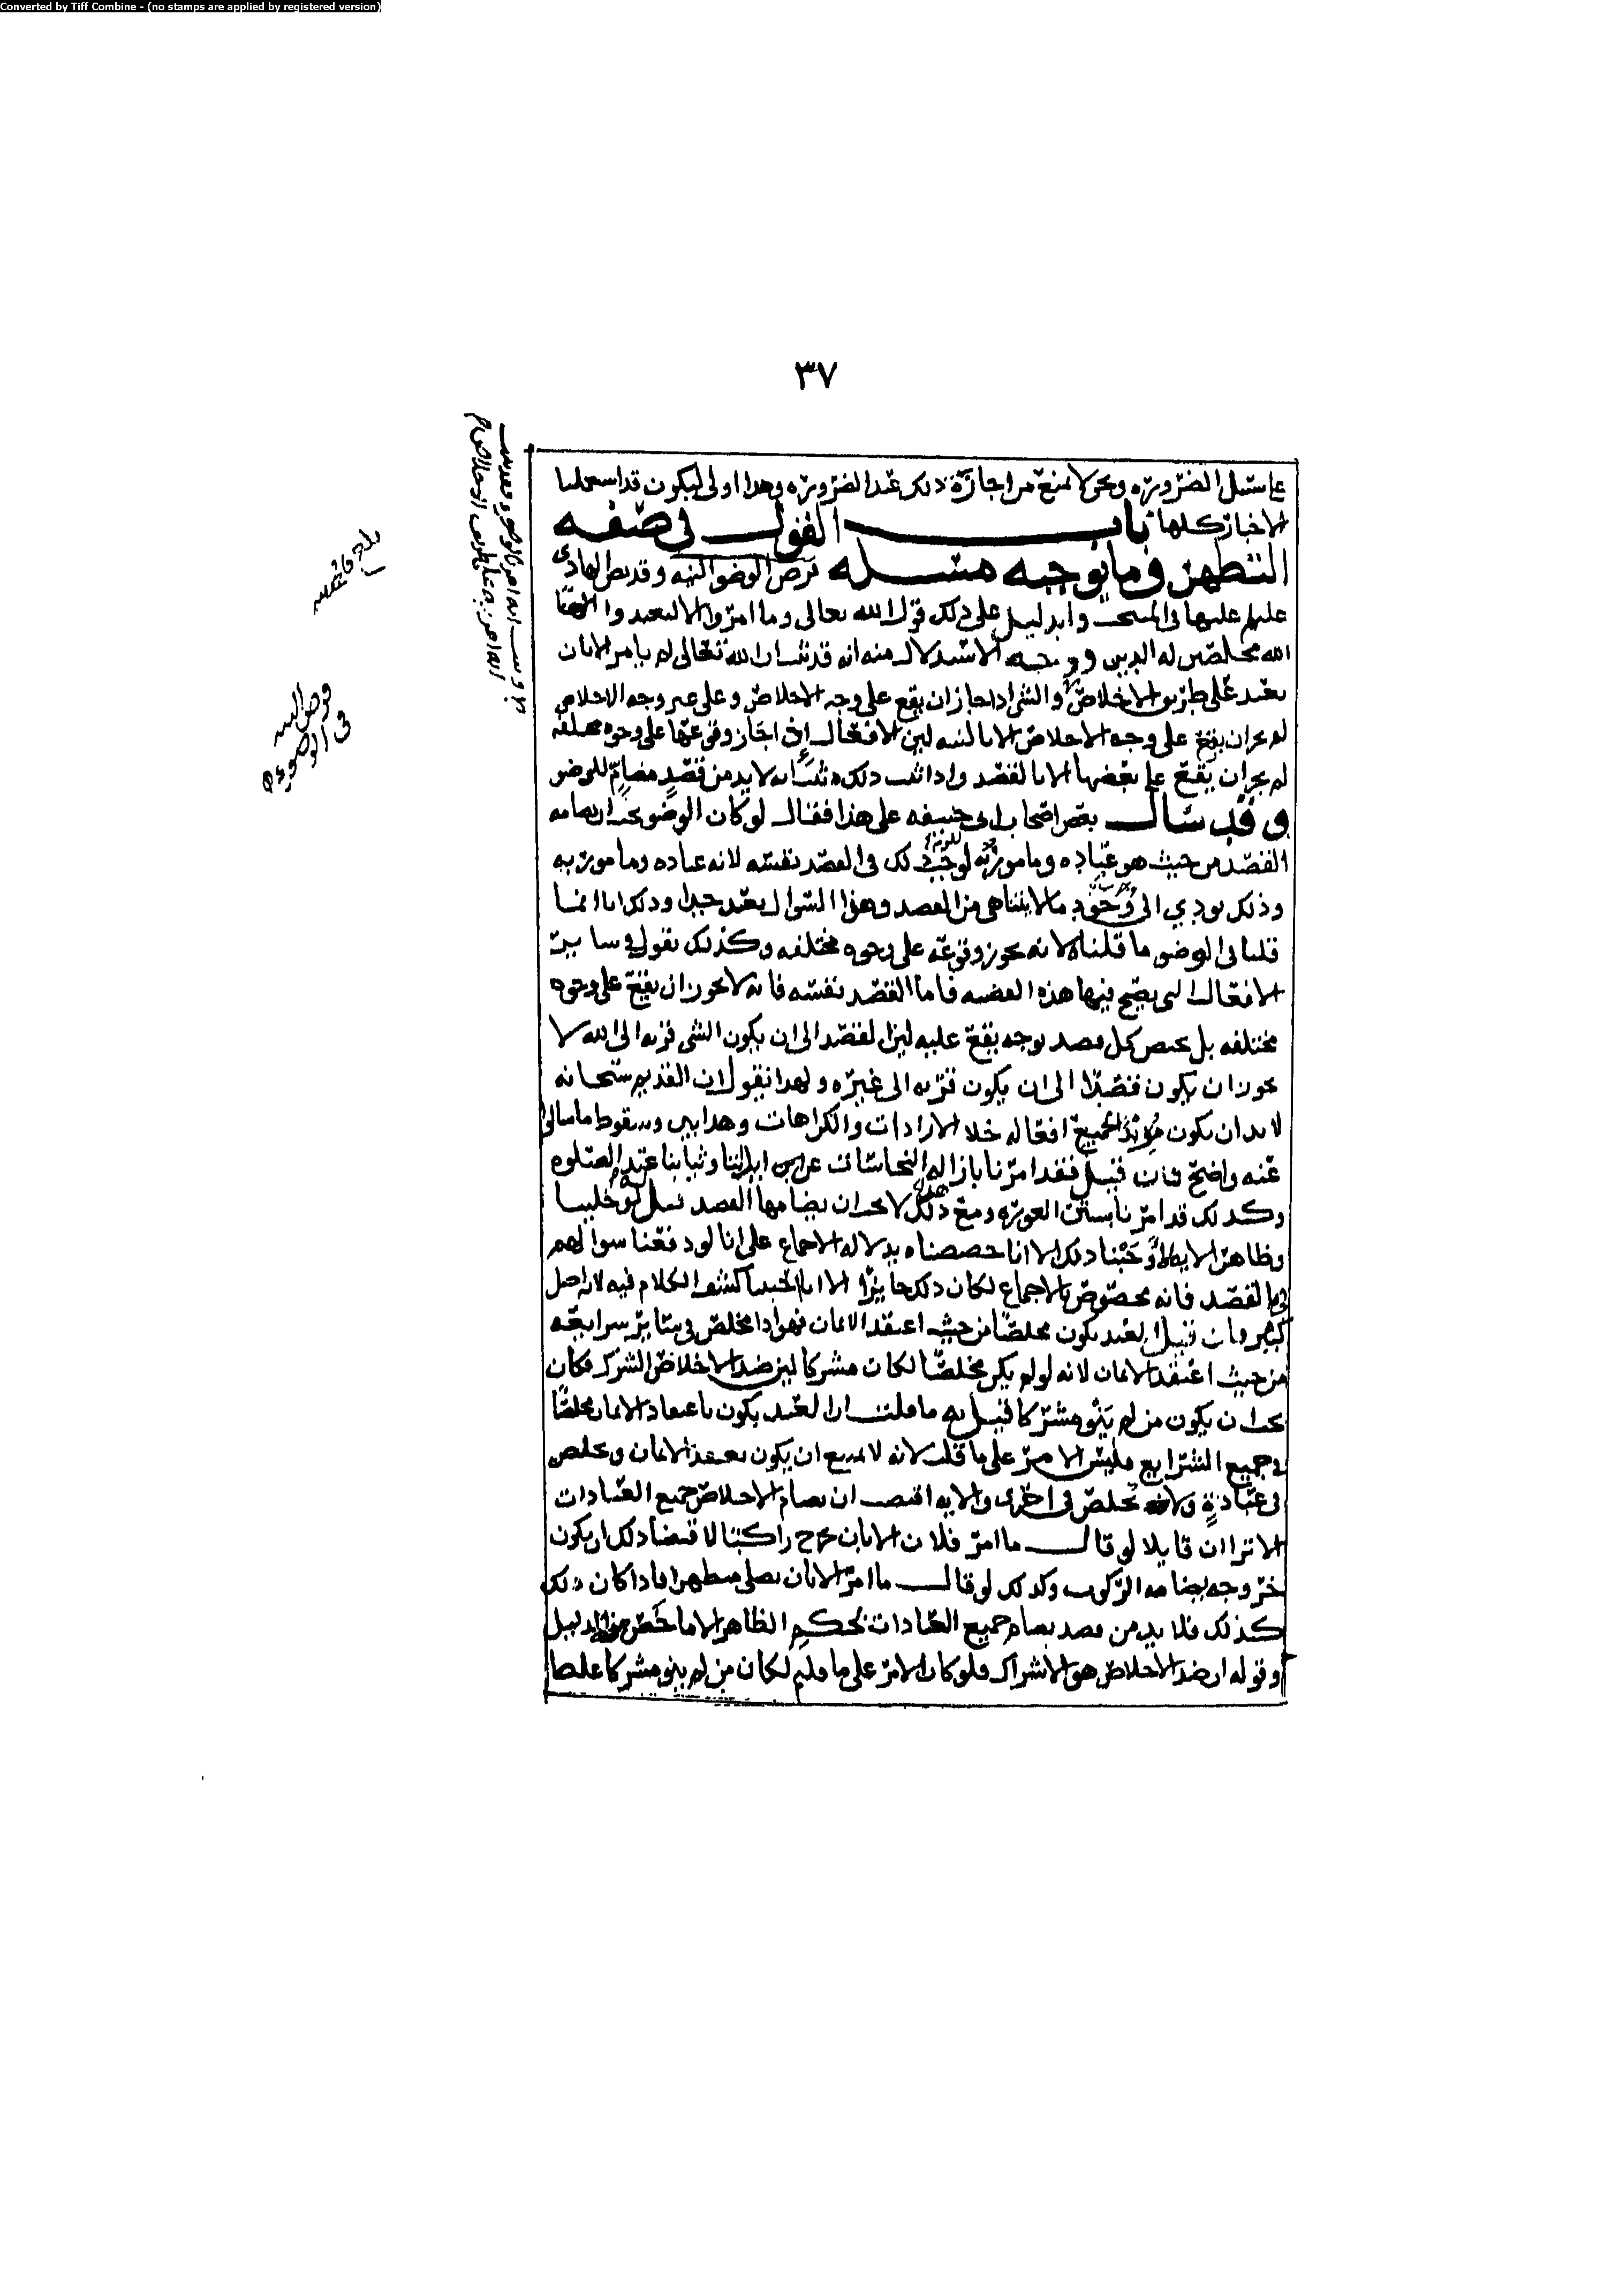 Converted by Tiff Combine - (no stamps are applied by registered version)
٣٧
على سبيل الضروره ونحن لا نمنع من اجازة ذلك عند الضروره وهذا اولى ليكون قد استعملنا
الاخبار كلها باب القول في صفه
التطهر وما يوجبه مسئله فرض الوضوء النيه وقد نص الهادي
عليلم عليها في المنتخب والدليل على ذلك قول الله تعالى وما امروا الا ليعبدوا
الله مخلصين له الدين ووجه الاستدلال منه انه قد ثبت ان الله تعالى لم يامر الا بان
نعبد على طريق الاخلاص والشي اذا جاز ان يقع على وجه الاخلاص وعلى غير وجه الاخلاص
لم يجز ان يقع على وجه الاخلاص الا بالنيه لين الافعال اذا جاز وقوعها على وجوه مختلفه
لم يجز ان يقع على بعضها الا بالقصد واذا ثبت ذلك ثبت انه لا بد من قصد مضام للوضو
وقد سال بعض اصحاب ابي حنيفه على هذا فقال لو كان الوضو يجب ان يضامه
القصد من حيث هو عباده ومامور به لوجب ذلك في القصد نفسه لانه عباده ومامور به
وذلك يودي الى وجود ما لا يتناهى من القصد وهذا السوال بعيد جدا وذلك انا انما
قلنا في الوضو ما قلناه لانه يجوز وقوعه على وجوه مختلفه وكذلك نقول في ساير
الافعال التي يصح فيها هذه القضيه فاما القصد نفسه فانه لا يجوز ان يقع على وجوه
مختلفه بل يختص كل قصد بوجه يقع عليه لين القصد الى ان يكون الشي قربه الى الله لا
يجوز ان يكون قصدا الى ان يكون قربه الى غيره ولهذا نقول ان القديم سبحانه
لا بد ان يكون مريدا لجميع افعاله خلا الارادات والكراهات وهذا بين وسقوط ما سالوا
عنه واضح فان قيل فقد امرنا بازاله النجاسات عن ابداننا وثيابنا عند الصلوه
وكذلك قد امرنا بستر العوره ومع ذلك لا يجب ان يضامها القصد قيل له لو خلينا
وظاهر الايه لاوجبنا ذلك الا انا خصصناه بدلاله الاجماع على انا لو دفعنا سوالهم
في القصد فانه مخصوص بالاجماع لكان ذلك جايزا الا انا احببنا كشف الكلام فيه لانه اصل
كبير فان قيل العبد يكون مخلصا من حيث اعتقد الايمان فهو اذا مخلص في ساير شرايعه
من حيث اعتقد الايمان لانه لو لم يكن مخلصا لكان مشركا لين ضد الاخلاص الشرك فكان
يجب ان يكون من لم ينو مشركا قيل له ما قلت ان العبد يكون باعتقاد الايمان مخلصا
في جميع الشرايع فليس الامر على ما قلت لانه لا يمتنع ان يكون يعتقد الايمان ويخلص
في عبادة ولا يخلص في اخرى والايه اقتضت ان يضام الاخلاص جميع العبادات
الا ترا ان قايلا لو قال ما امر فلان الا بان يخرج راكبا لاقتضا ذلك ان يكون
خروجه يضامه الركوب وكذلك لو قال ما امر الا بان يصلي متطهرا فاذا كان ذلك
كذلك فلا بد من قصد يضام جميع العبادات بحكم الظاهر الا ما خص منه الدليل
وقوله ان ضد الاخلاص هو الاشراك فلو كان الامر على ما قلتم لكان من لم ينو مشركا غلط
فرض النيه
في الوضوء